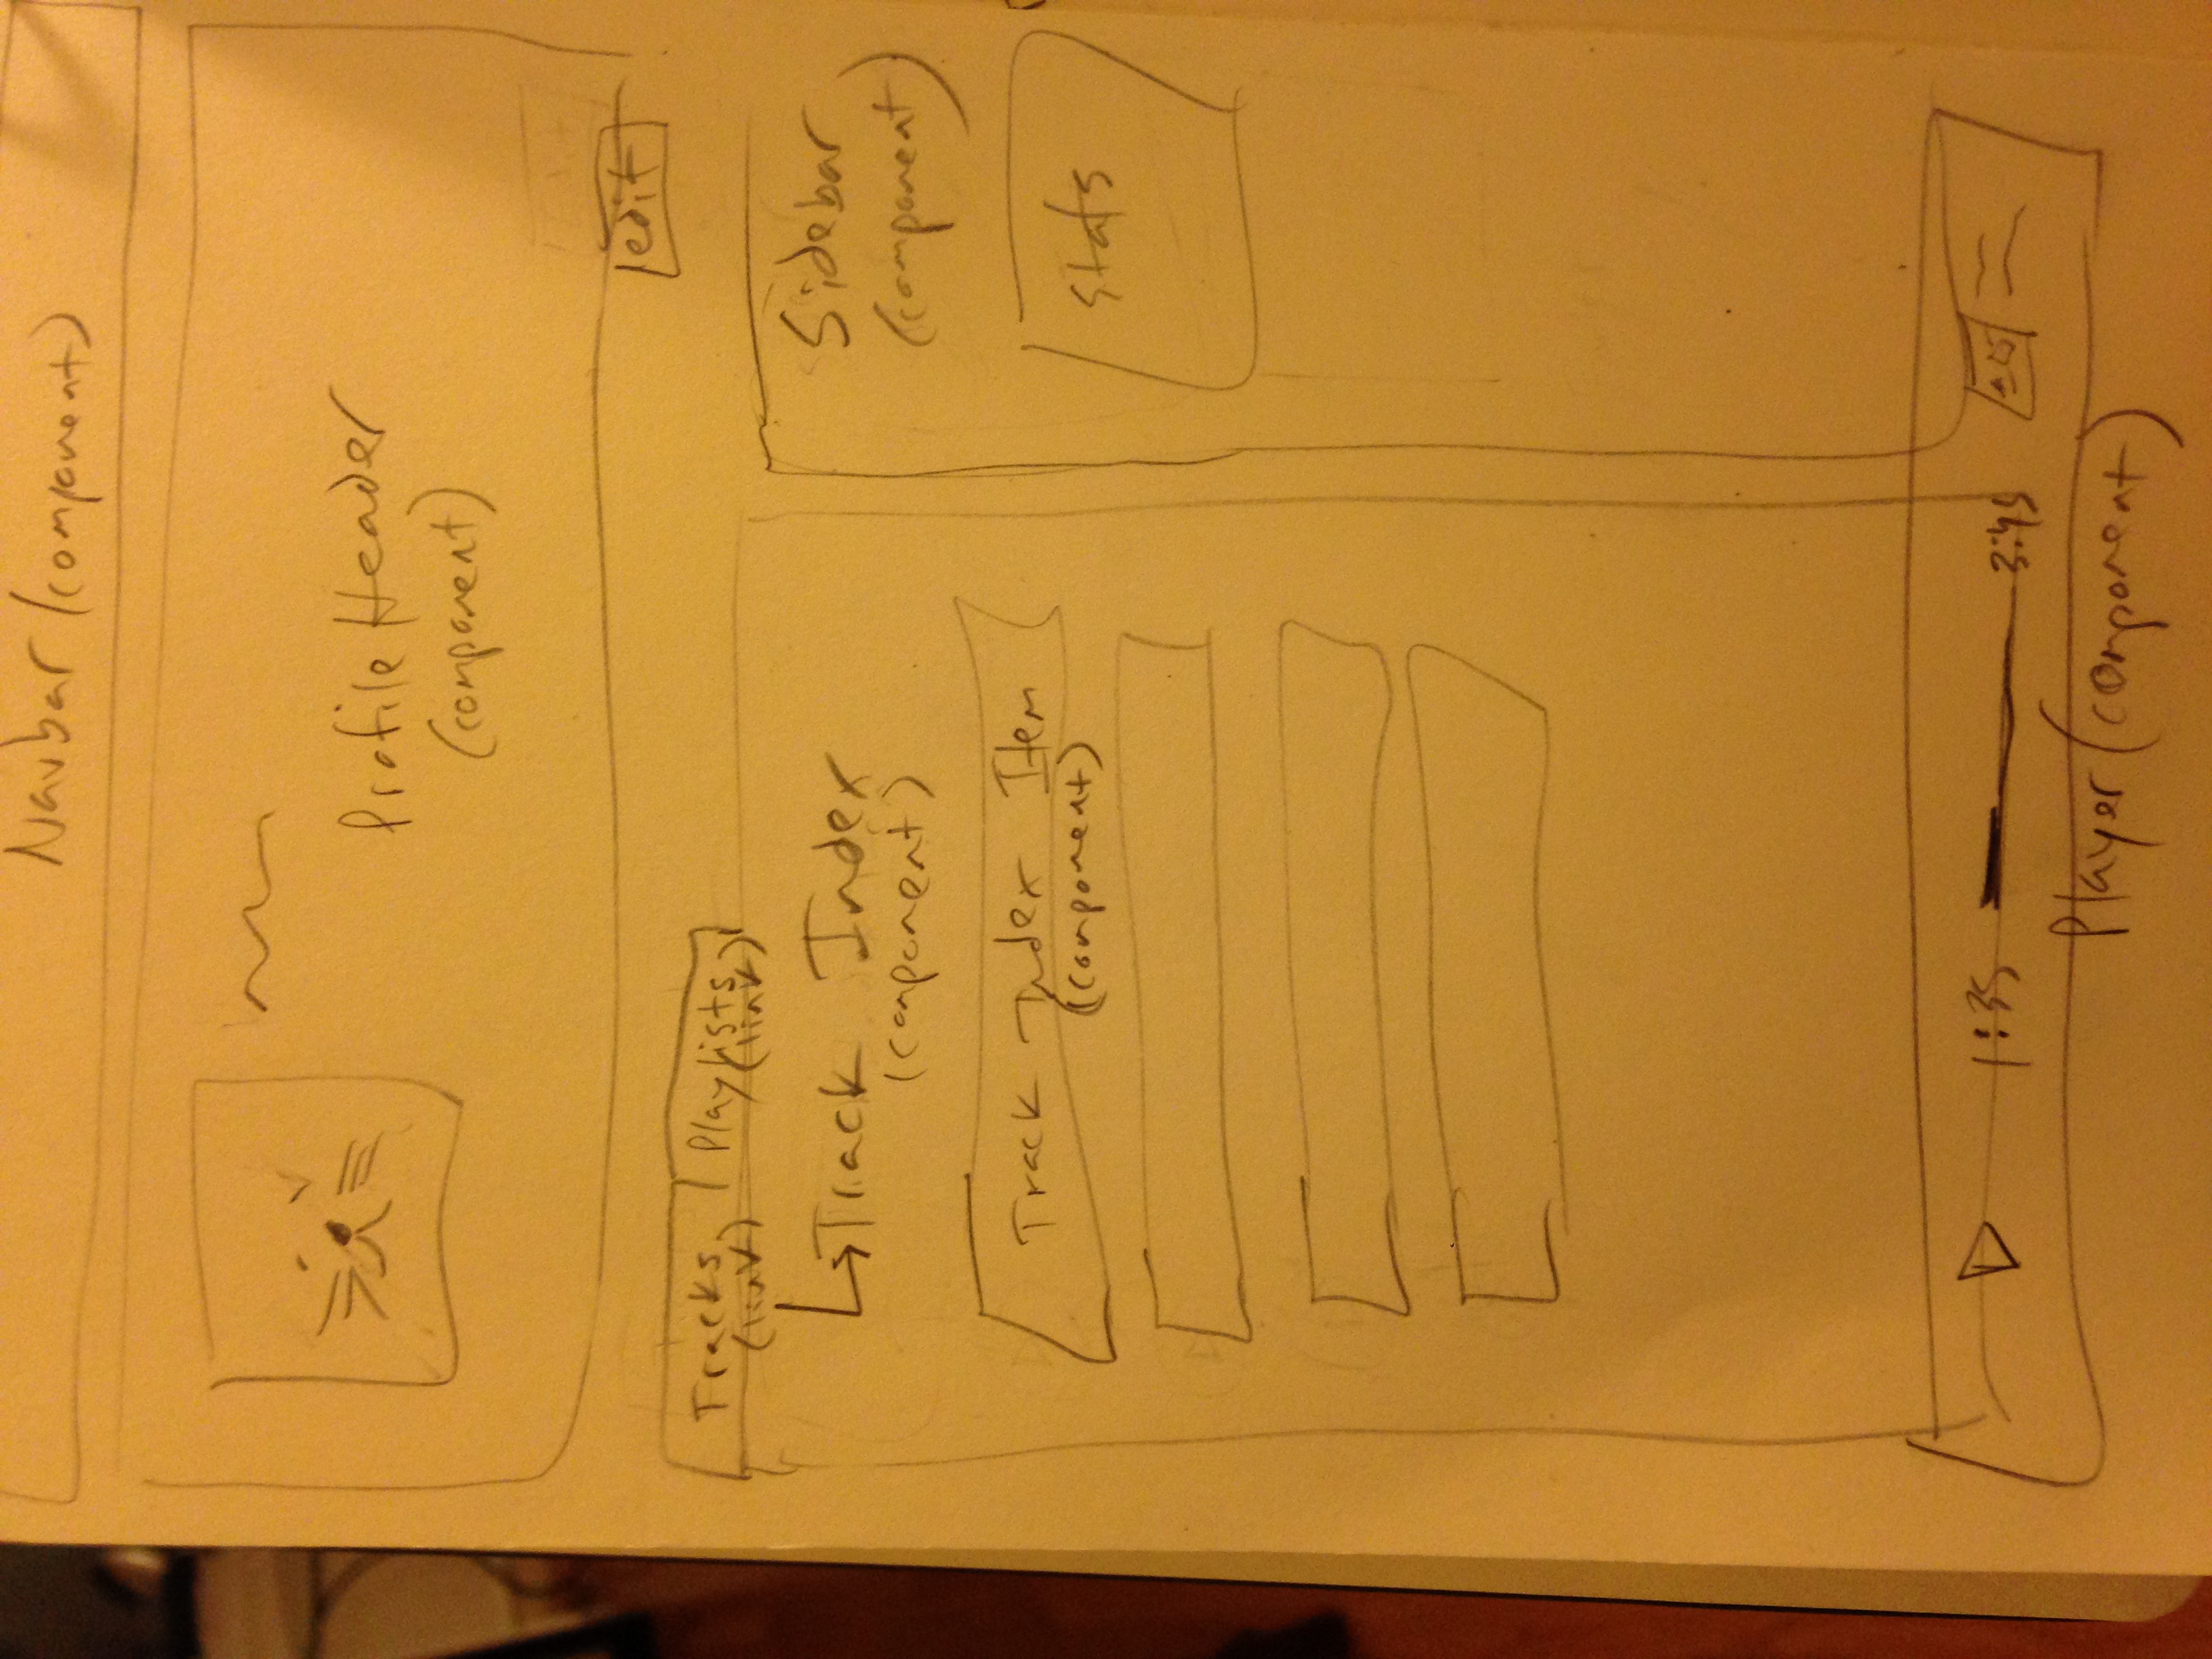 Navbar (component)
Profile Header
(component)
edit
Tracks
(link)
Playlists
(link)
Track Index
(component)
Sidebar
(component)
Track Index Item
(component)
stats
1:35
3:45
Player (component)